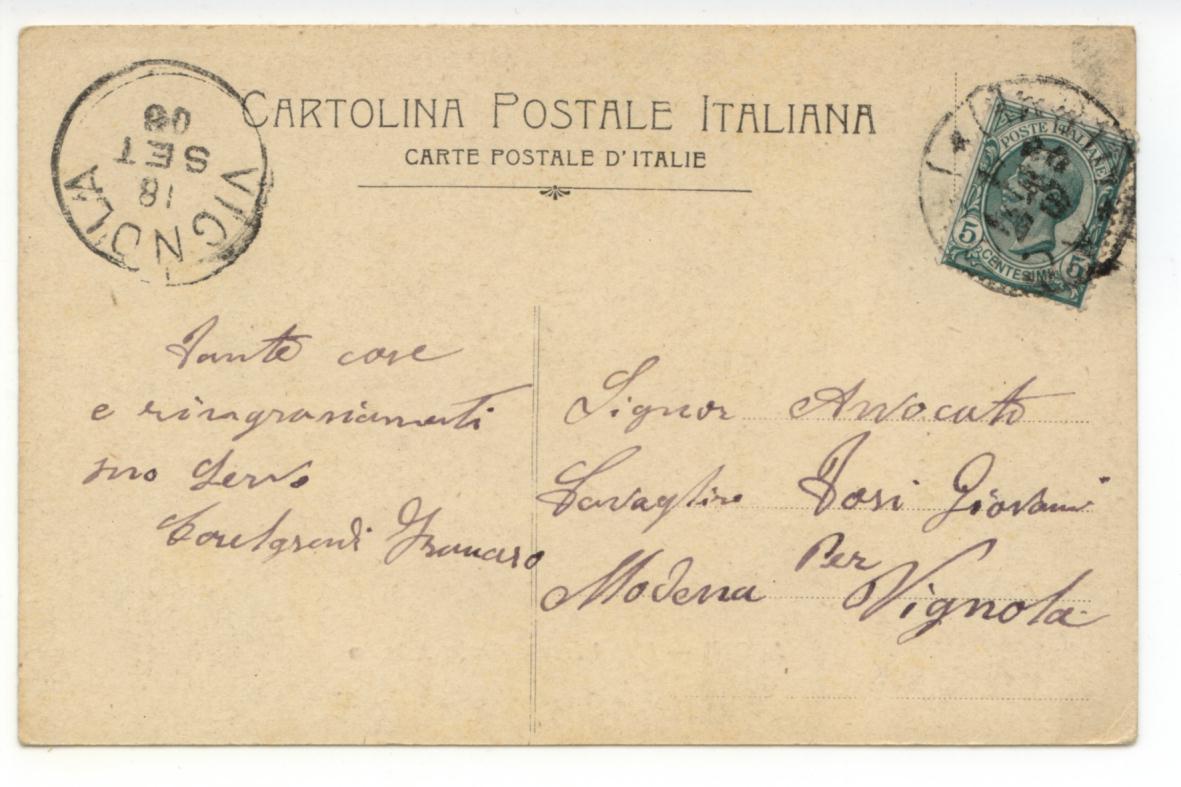 CARTOLINA POSTALE ITALIANA
CARTE POSTALE D'ITALIE
VIGNOLA
18
SET
08
POSTE ITALIANE
5 CENTESIMI 5
Tante cose
e ringraniamenti
suo servo
Francesco
Signor Avvocato
Tosi Giovani
Per
Modena Vignola